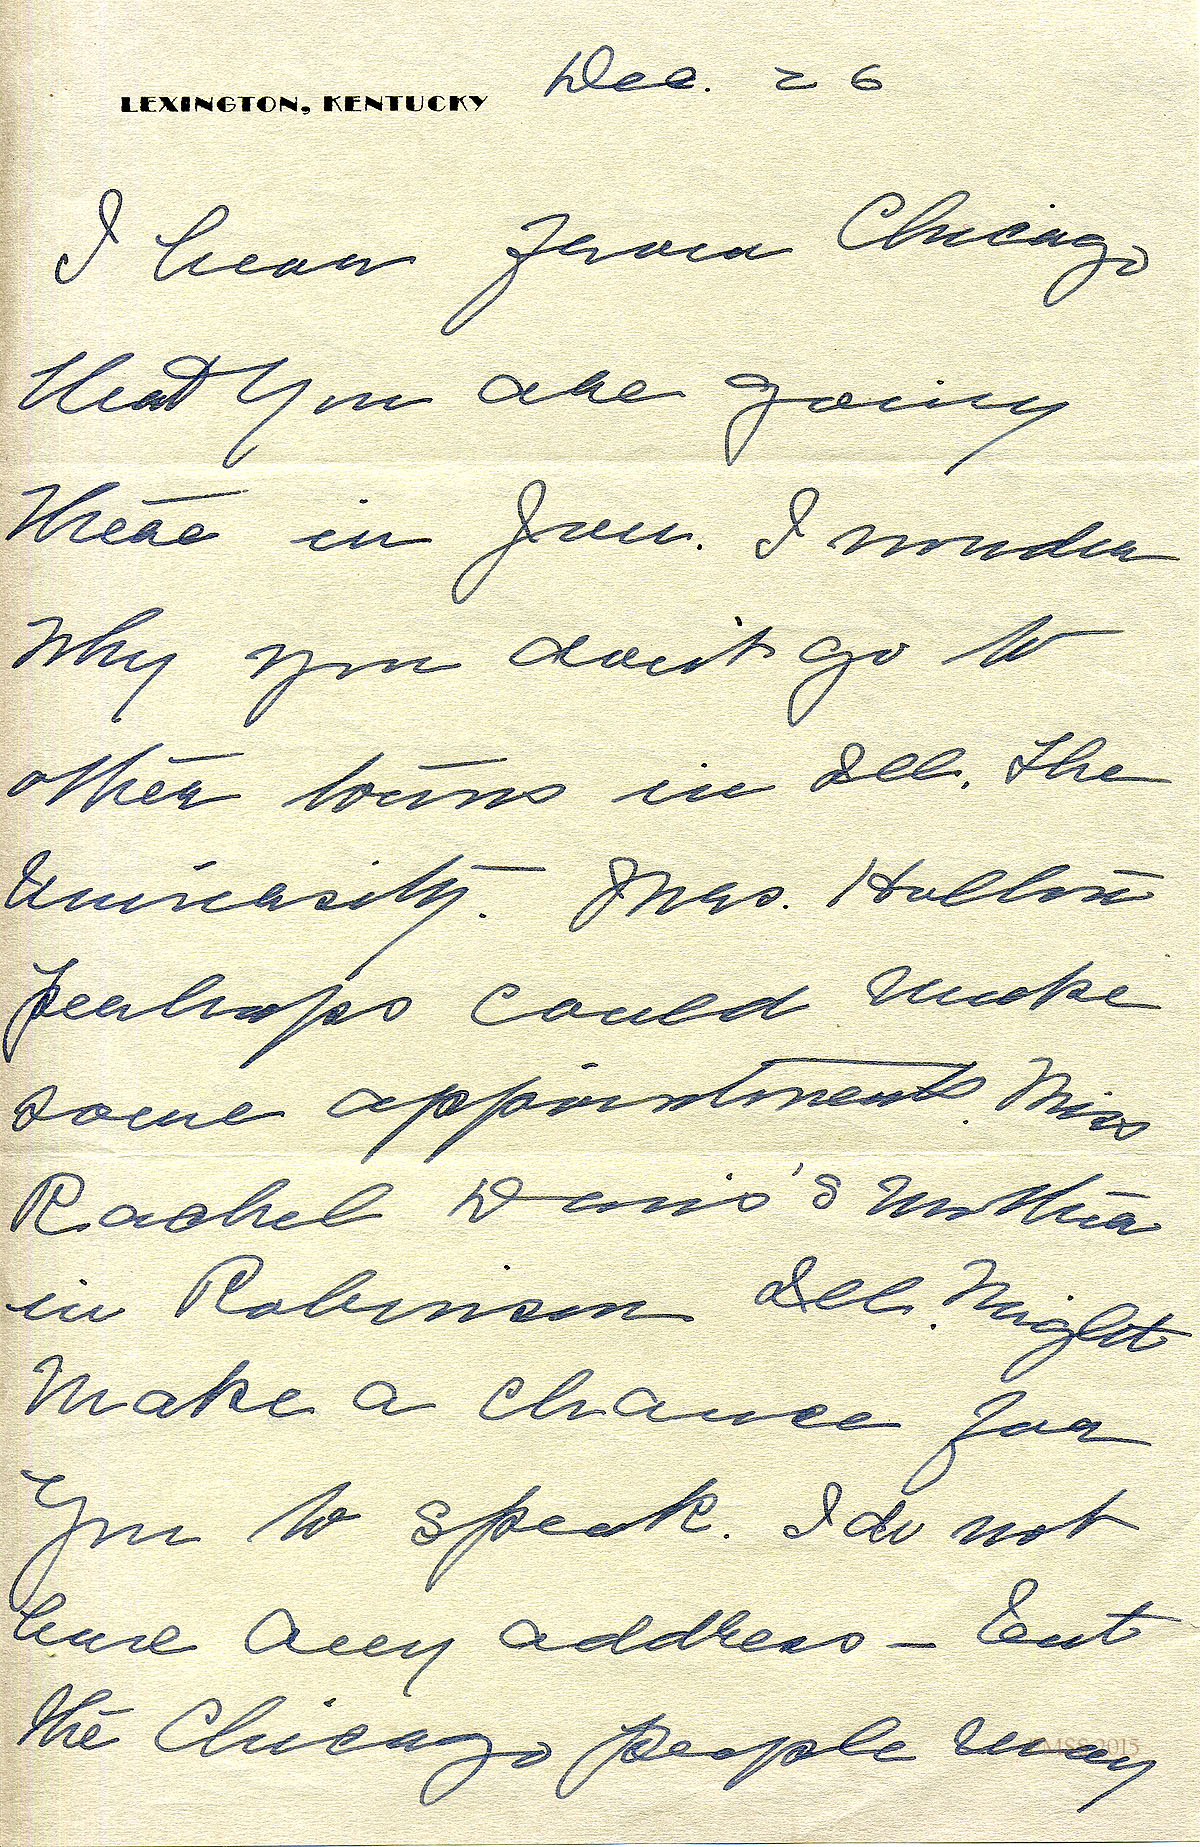 LEXINGTON, KENTUCKY Dec. 26
I hear from Chicago
that you are going
there in Jan. I wonder
Why you don't go to
other towns in Ill. The
University. Mrs. Hollon
perhaps could make
some appointments. Miss
Rachel Davis's mother
in Robinson Ill. Might
Make a chance for
You to speak. I do not
have any address — but
the Chicago people may
MSS 2015